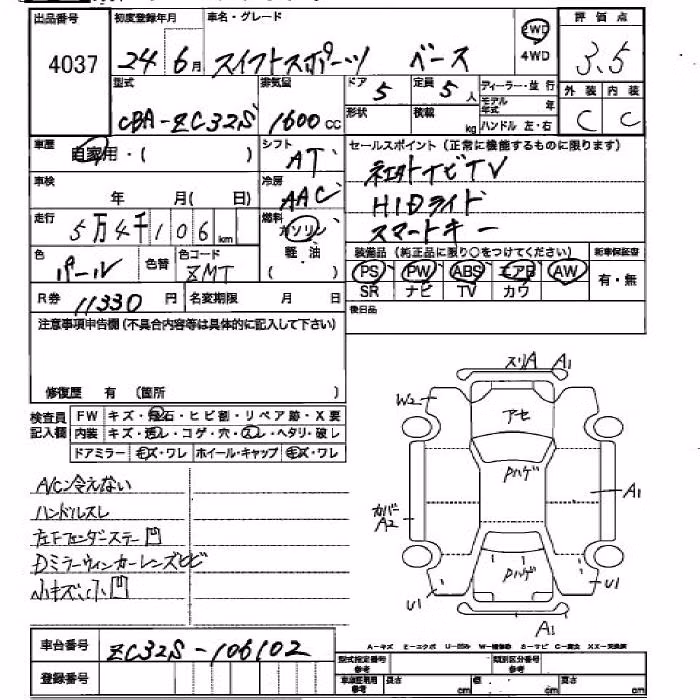 出品番号 初度登録年月 車名・グレード 評価点
4037 24年6月 スイフトスポーツ ベース 2WD 4WD 3.5
型式 排気量 ドア 5 定員 5人 ディーラー・並行 外装 内装
CBA-ZC32S 1600cc 形状 積載 kg モデル年式 年 ハンドル 左・右 C C
車歴 自家用・( ) シフト AT セールスポイント(正常に機能するものに限ります)
車検 年 月( 日) 冷房 AAC 社外ナビTV
走行 5万4千106km 燃料 ガソリン 軽油 ( ) HIDライト
スマートキー
色 パール 色替 色コード ZMT 装備品(純正品に限り○をつけてください) 新車保証書
PS PW ABS エアB AW 有・無
SR ナビ TV カワ
R券 11330円 名変期限 月 日 後日品
注意事項申告欄(不具合内容等は具体的に記入して下さい)
修復歴 有 (箇所 )
検査員記入欄 FW キズ・飛石・ヒビ割・リペア跡・X要
内装 キズ・汚レ・コゲ・穴・スレ・ヘタリ・破レ
ドアミラー キズ・ワレ ホイール・キャップ キズ・ワレ
A/C冷えない
ハンドルスレ
左Fフェンダーステー凹
Dミラーウィンカーレンズヒビ
小キズ、小凹
スリA A1
W2
アセ
Pハゲ
カバー A2
A1
Pハゲ
U1
U1
A1
A-キズ E-エクボ U-凹み W-補修跡 S-サビ C-腐食 XX-交換済
車台番号 ZC32S-106102
登録番号
型式指定番号 参考 類別区分番号 参考
車庫証明用 参考 長さ cm 幅 cm 高さ cm